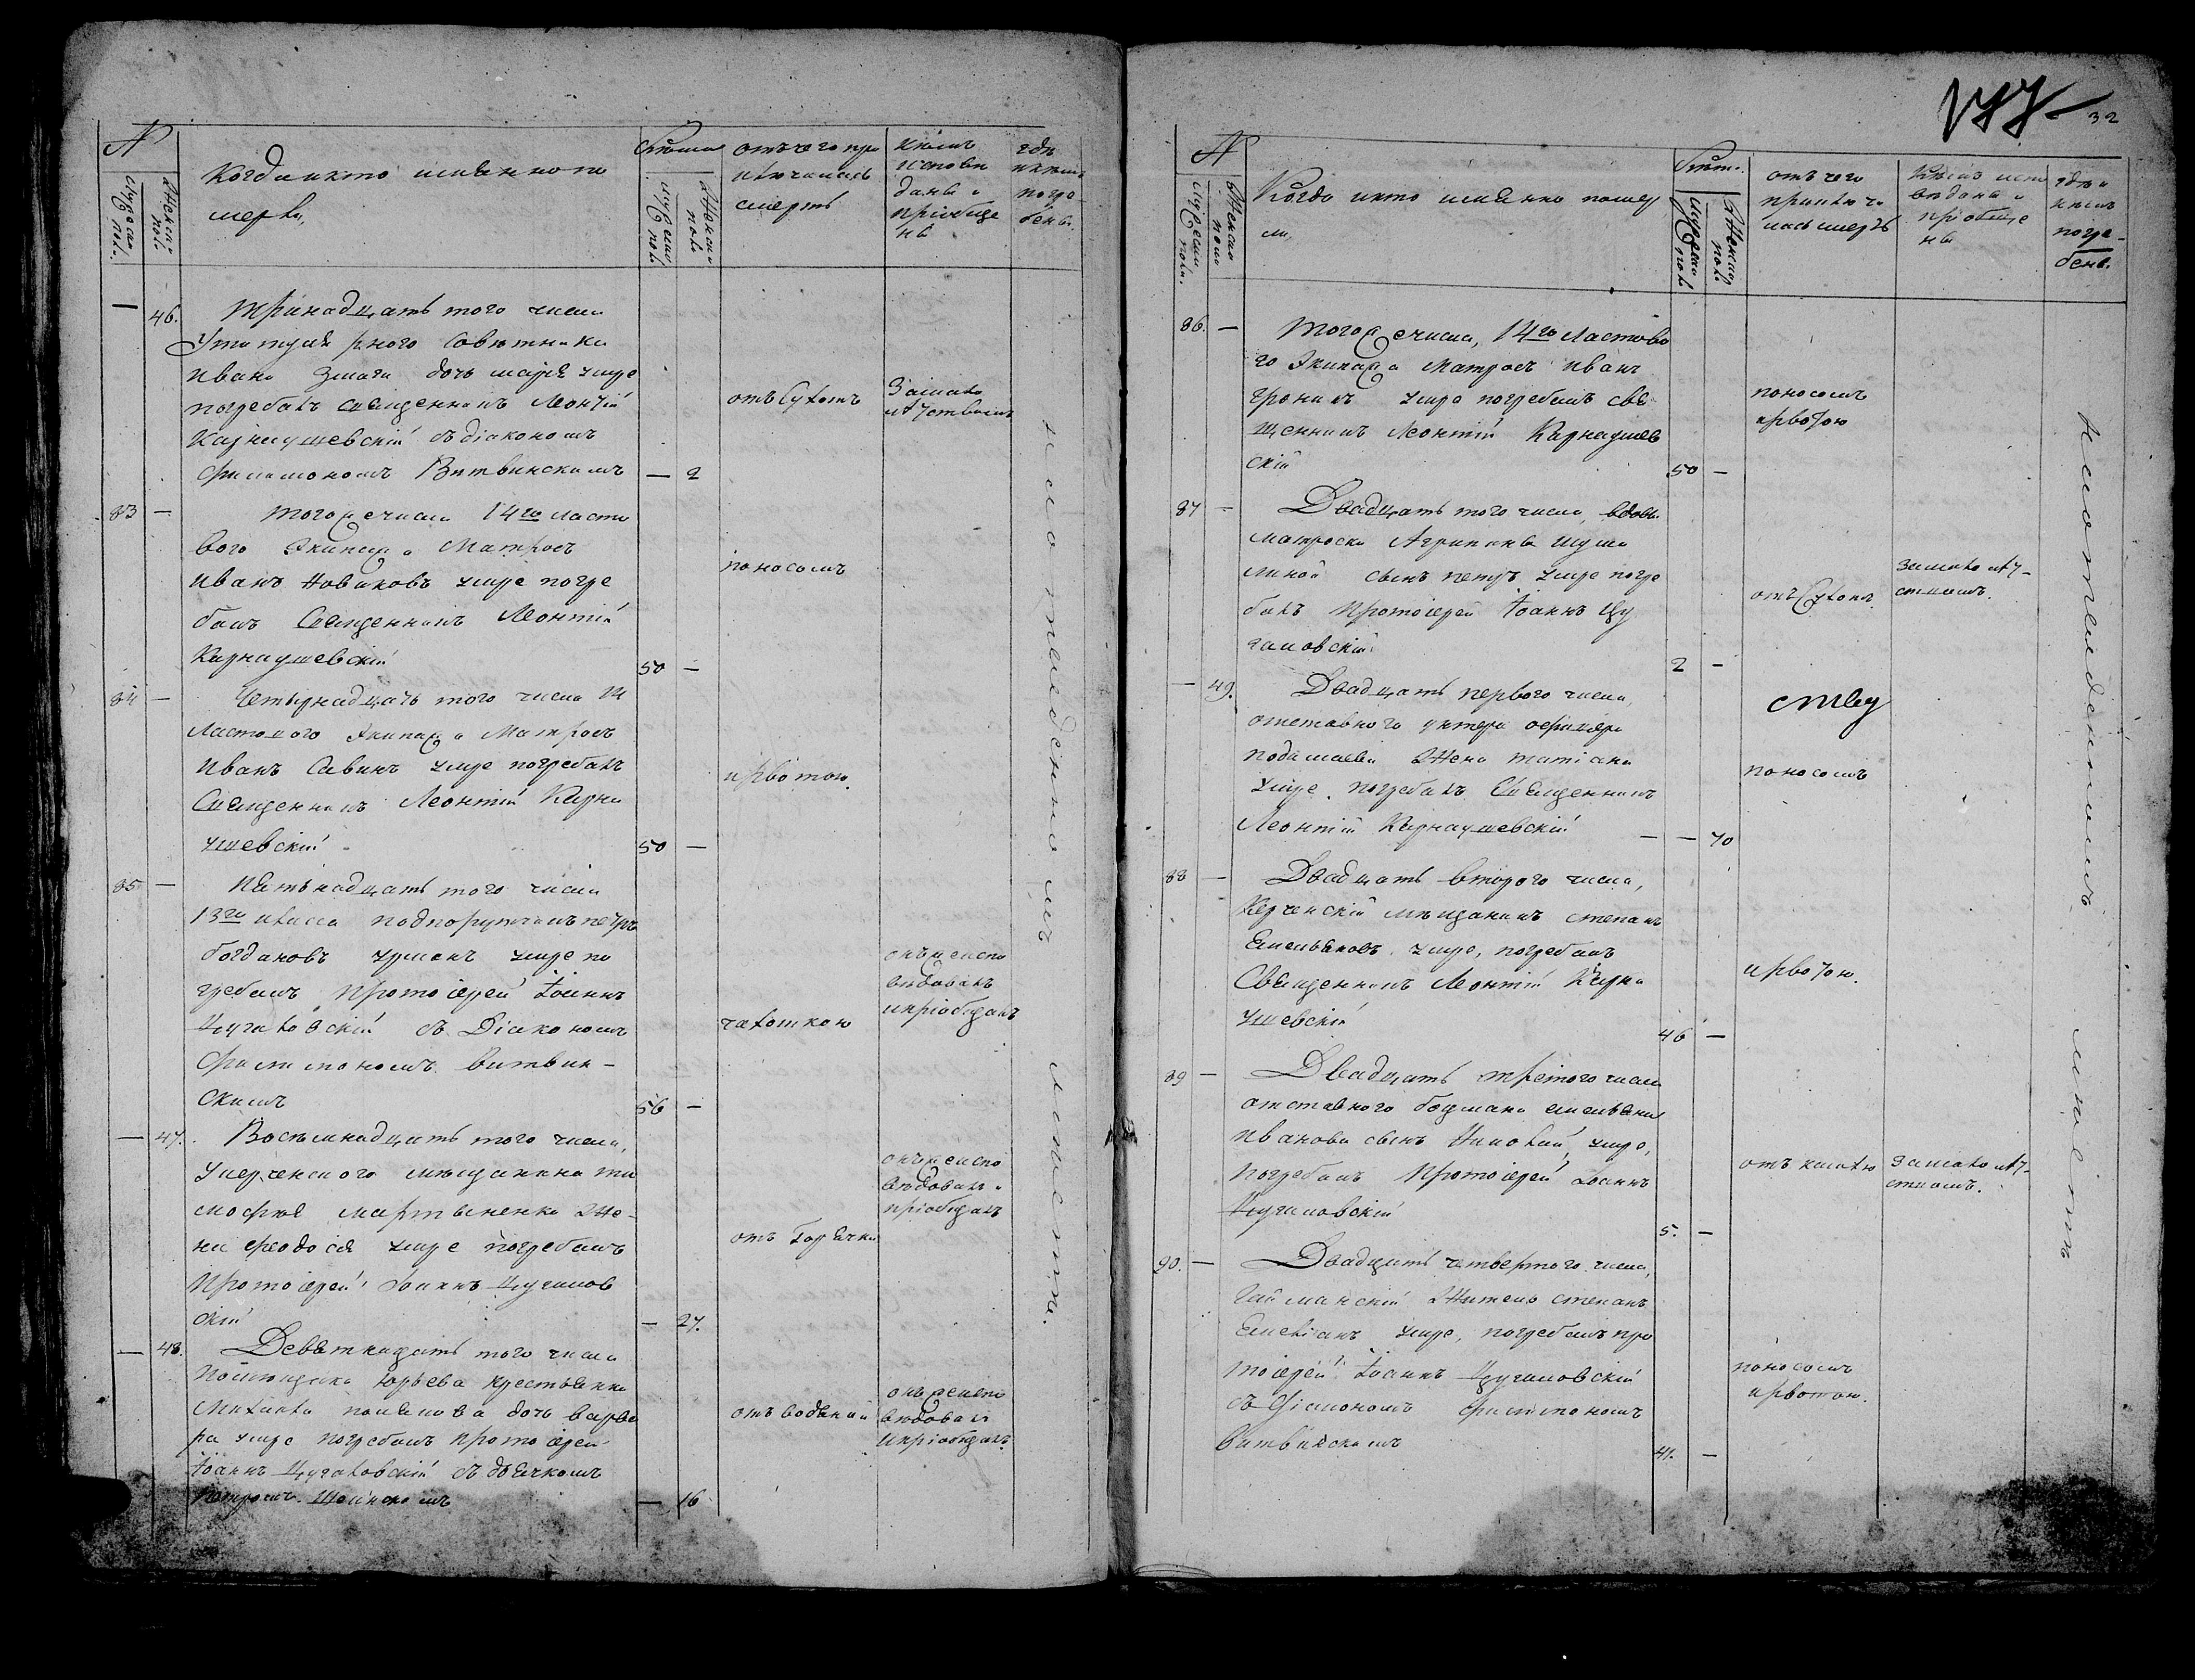 №
Мужеска
пола.
Женска
пола.
Когда и кто именно по
мерлъ,
Лѣта
Мужеска
пола
Женска
пола
отъ чего при
ключилась
смерть
Кѣмъ
исповѣ
даны и
пріобще
ны
гдѣ
и кѣмъ
погре-
бены.
— 46. Тринадцатьтого числа
У титулярного Совѣтника
Ивана Змаги дочь марія умре
погребалъ священникъ Леонтій
Карнаушевскій съ діакономъ
Филимономъ Витвинскимъ — 2
отъ Сухотъ
За мало
лѣтствомъ
83 — Того же числа 14го Ласто
вого Экипажа Матросъ
Иванъ Новиковъ умре погре
балъ Священникъ Леонтій
Карнаушевскій 50 —
поносомъ
84 — Четырнадцать того числа 14
Ластового Экипажа Матросъ
Иванъ Савинъ умре погребалъ
Священникъ Леонтій Карна
ушевскій 50 —
рвотою.
85 — Пятьнадцать того числа
13го класса подпоручикъ петръ
богдановъ умре по
гребалъ Протоіерей Іоаннъ
Цугаловскій съ Діакономъ
Филимономъ Витвин-
скимъ 56 —
чахоткою
онъ же испо
вѣдовалъ
и пріобщалъ
— 47. Восемнадцать того числа,
У керченского мѣщанина ти
мофея мартыненка Же-
на феодосія умре погребалъ
Протоіерей Іоаннъ Цугалов
скій — 27.
отъ Горячки
онъ же испо
вѣдовалъ и
пріобщалъ
— 48. Девятнадцать того числа
Помѣщика Юрьева крестьянина
Михаила дочь варва
ра умре погребалъ протоіерей
Іоаннъ Цугаловскій съ дьячкомъ
Петромъ — 16
отъ водяной
онъ же испо
вѣдовалъ
и пріобщалъ.
на отведенномъ мѣстѣ.
32
№
Мужеска
пола.
Женска
пола
Когда и кто именно помер
ли,
Лѣта.
Мужеска
пола
Женска
пола
отъ чего
приключи
лась смерть
Кѣмъ испо
вѣданы и
пріобще
ны
гдѣ и
кѣмъ
погре-
бены.
86. — Того же числа, 14го Ластово
го Экипажа Матросъ Иванъ
умре погребалъ свя
щенникъ Леонтій Карнаушев
скій 50 —
поносомъ
рвотою
87 — Двадцать того числа, вдовы
матроски Агрипины Шума
линой сынъ петръ умре погре
балъ Протоіерей Іоаннъ Цу
галовскій 2 —
отъ Сухотъ.
За малолѣт-
ствомъ.
— 49. Двадцать первого числа,
отставного унтеръ офицера
Жена татіана
умре погребалъ Священникъ
Леонтій Карнаушевскій — 70
ству
поносомъ
88 — Двадцать второго числа,
Керченскій мѣщанинъ степанъ
Емельяновъ умре, погребалъ
Священникъ Леонтій Карна
ушевскій 46 —
рвотою.
89 — Двадцать третого числа
отставного боцмана емельяна
Иванова сынъ Николай умре,
погребалъ Протоіерей Іоаннъ
Цугаловскій 5. —
отъ кашлю
За малолѣт-
ствомъ.
90. — Двадцать четвертого числа,
Житель степанъ
умре, погребалъ про
тоіерей Іоаннъ Цугаловскій
съ Діакономъ Филимономъ
Витвинскимъ 41. —
поносомъ
рвотою.
на отведенномъ мѣстѣ